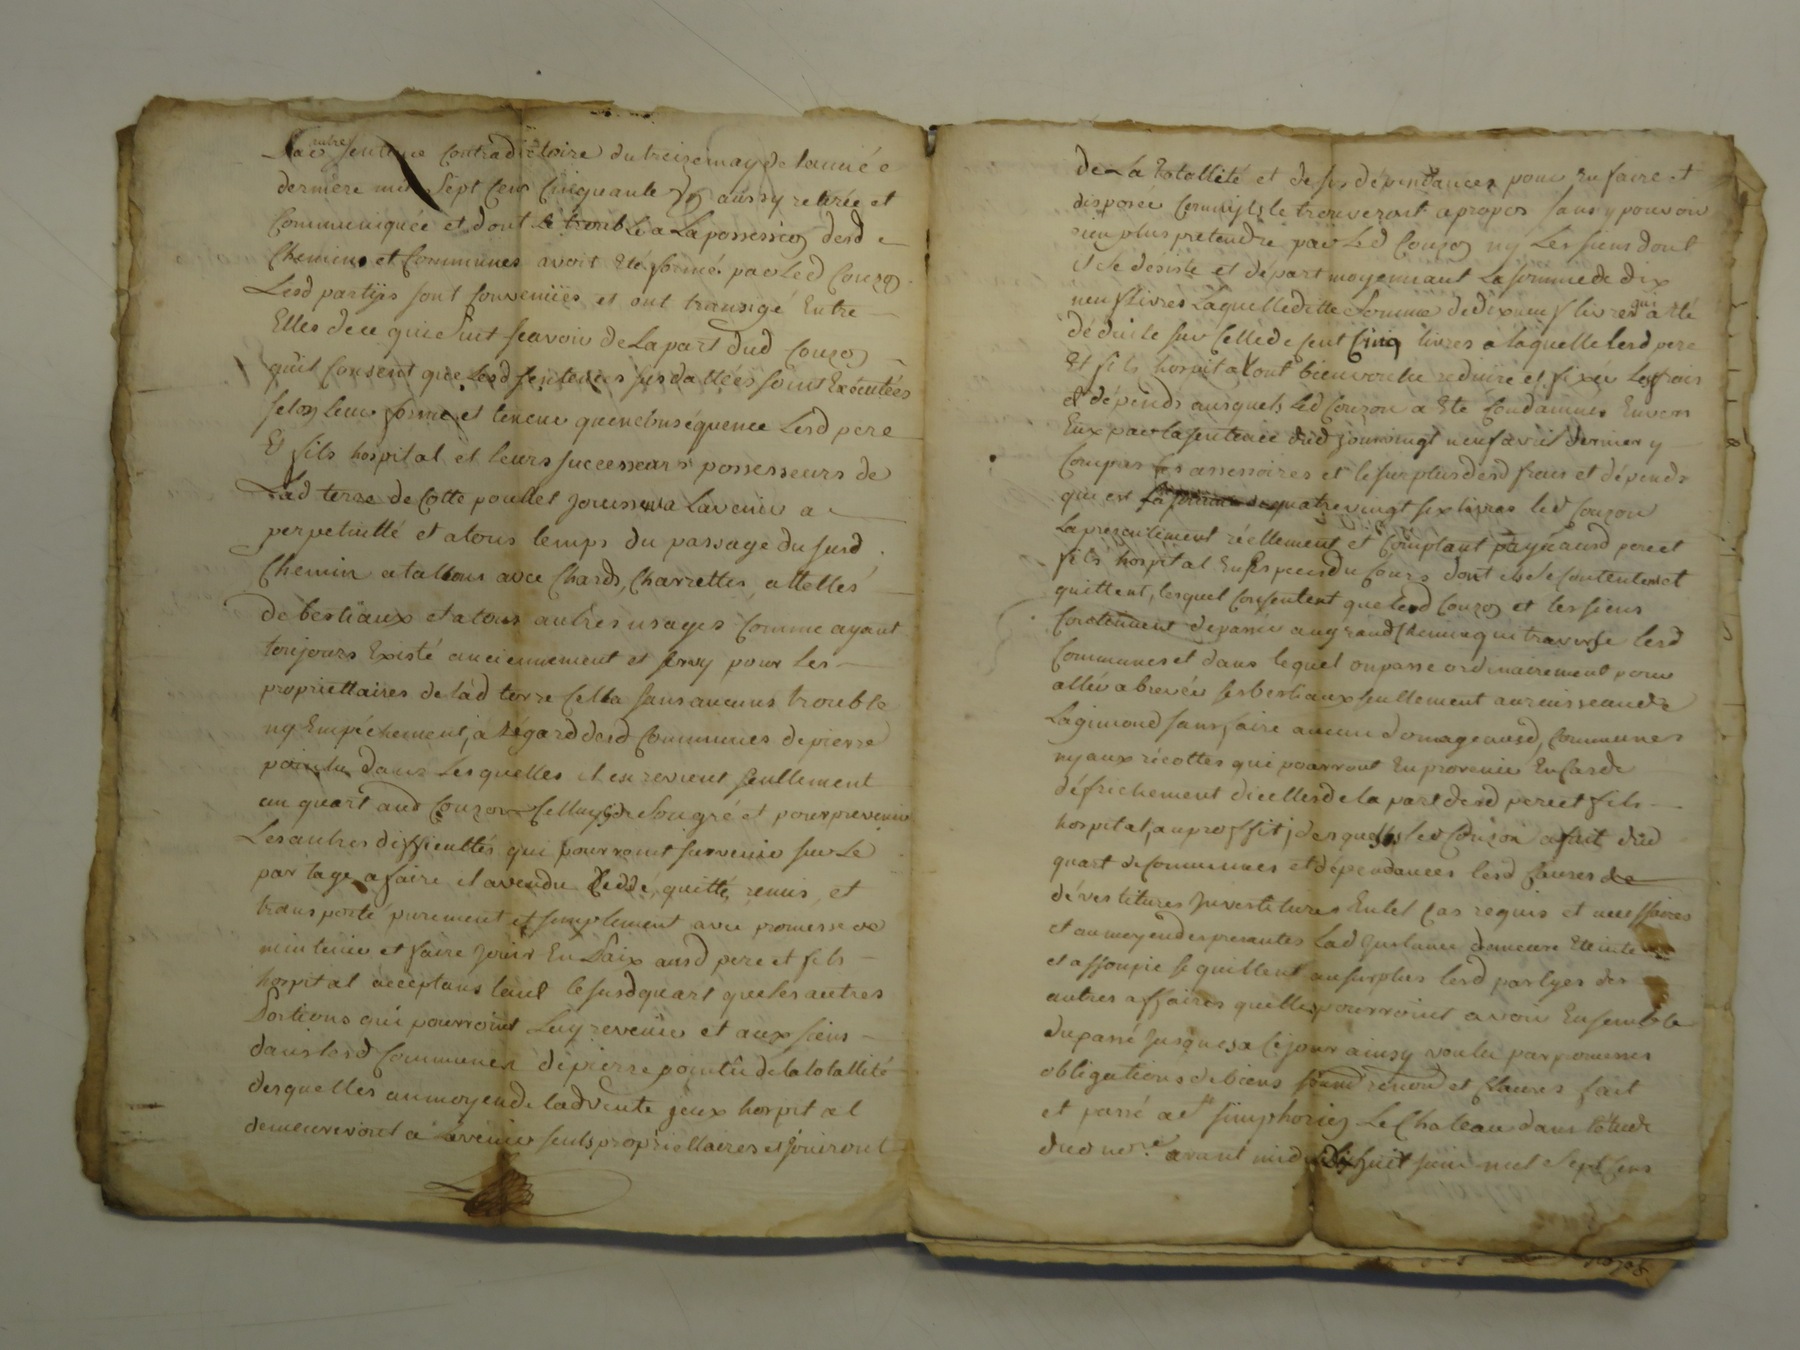 autre
sentence contradictoire du treize may de lannéé
derniere mil sept cens cinquante aussy retirée et
Communiquée et dont le trouble a La possession desd
Chemins et Communes avoit Eté formé par Led Couzon
Lesd partyes sont convenües et ont transigé Entre
Elles de ce qui suit scavoir de La part dud Couzon
quil Consent que Lesd sentences susdattées soint Executées
selon leur forme et teneur quen Conséquence Lesd pere
Et fils hospital et leurs successeurs possesseurs de
Lad terre de Cotte poullet Jouissent a Lavenir a
perpetuitté et a tous temps du passage du susd
Chemin a tallons avec Chards, Charrettes attellés
de bestiaux et a tous autres usages Comme ayant
toujours Existé anciennement et servy pour Les
propriettaires de lad terre Cella sans aucuns trouble
ny Empéchement, a Légard desd Communes de pierre
pointu dans Lesquelles il en revient seullement
un quart aud Couzon Celluy cy de son gré et pour prevenir
Les autres difficultés qui pourroint survenir sur Le
partage a faire il a vendu Ceddé, quitté, remis, et
transporté purement et simplement avec promesse de
maintenir et faire Jouir En Paix ausd pere et fils
hospital acceptans tant le susd quart que les autres
Portions qui pourroint Luy revenir et aux siens
dans lesd Communes de pierre pointû de la totallité
desquelles au moyen de lad vente yeux hospital
demeureront a Lavenir seuls propriettaires et Jouiront
de La totallité et de ses dépendances pour En faire et
disposer Comm'ils le trouveront a propos sans y pouvoir
rien plus pretendre par Led Couzon ny Les siens dont
il se désiste et départ moyennant La somme de dix
neuf Livres Laquelle ditte somme de dixneuf livres qui a eté
déduite sur Celle de Cent Cinq livres a laquelle Lesd pere
Et fils hospital ont bien voulu reduire et fixer Les frais
et dépends ausquels Led Couzon a Ete Condamné Envers
Eux par la sentence dud Jour vingt neuf avril dernier y
Compris les assessoires et le surplus desd frais et dépends
qui est la somme de quatrevingt six livres led Couzon
La presentement réellement et Comptant payé ausd pere et
fils hospital En Especes du Cours dont ils se Contentent et
quittent, lesquel Consentent que led Couzon et les siens
Continuent de passer au grand Chemin qui traverse lesd
Communes et dans lequel on passe ordinairement pour
aller abrever ses bestiaux seullement au ruisseau de
Lagimond sans faire aucun domage ausd, Communes
ny aux récottes qui pourront En provenir En Cas de
défrichement dicelles de la part desd pere et fils
hospital, au proffit desquels led Couzon a fait dud
quart de Communes et dépendances lesd Clauses de
dévestitures Juvestitures En tel Cas requis et necessaires
et au moyen des presantes Lad Jnstance demeure Eteinte
et assoupie se quittent au surplus lesd partyes des
autres affaires quelles pourroint avoir Ensemble
du passé Jusques a Ce jour ainsy voulu par promesses
obligations de biens soumd renond et Clauses fait
et passé a St simphorien Le Chateau dans létude
dud nore avant midy Dixhuit Juin mil sept Cens